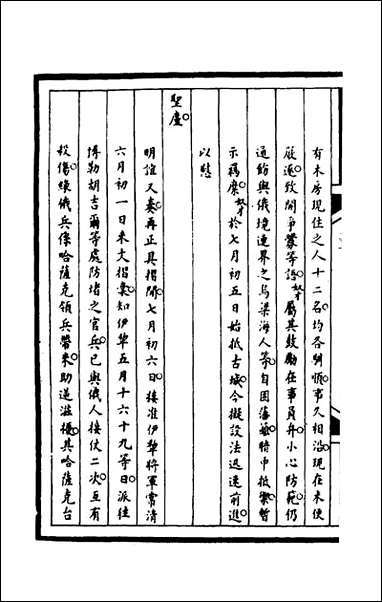 有木房現住之人十二名均各馴順事久相沿現在未便
啟逐致開爭釁等語奴才屬其鼓勵在事員弁小心防範仍
通飭與俄境連界之烏梁海人等自固藩籬暗中抵禦暫
示羈縻奴才於七月初五日始抵古城今擬設法迅速前進
以慰
聖廑
明誼又奏再正具摺間七月初六日接准伊犂將軍常清
六月初一日來文摺稾知伊犂五月十六十九等日派往
博勒胡吉爾等處防堵之官兵已與俄人接仗二次互有
殺傷緣俄兵係哈薩克領兵帶來助逆滋擾其哈薩克台